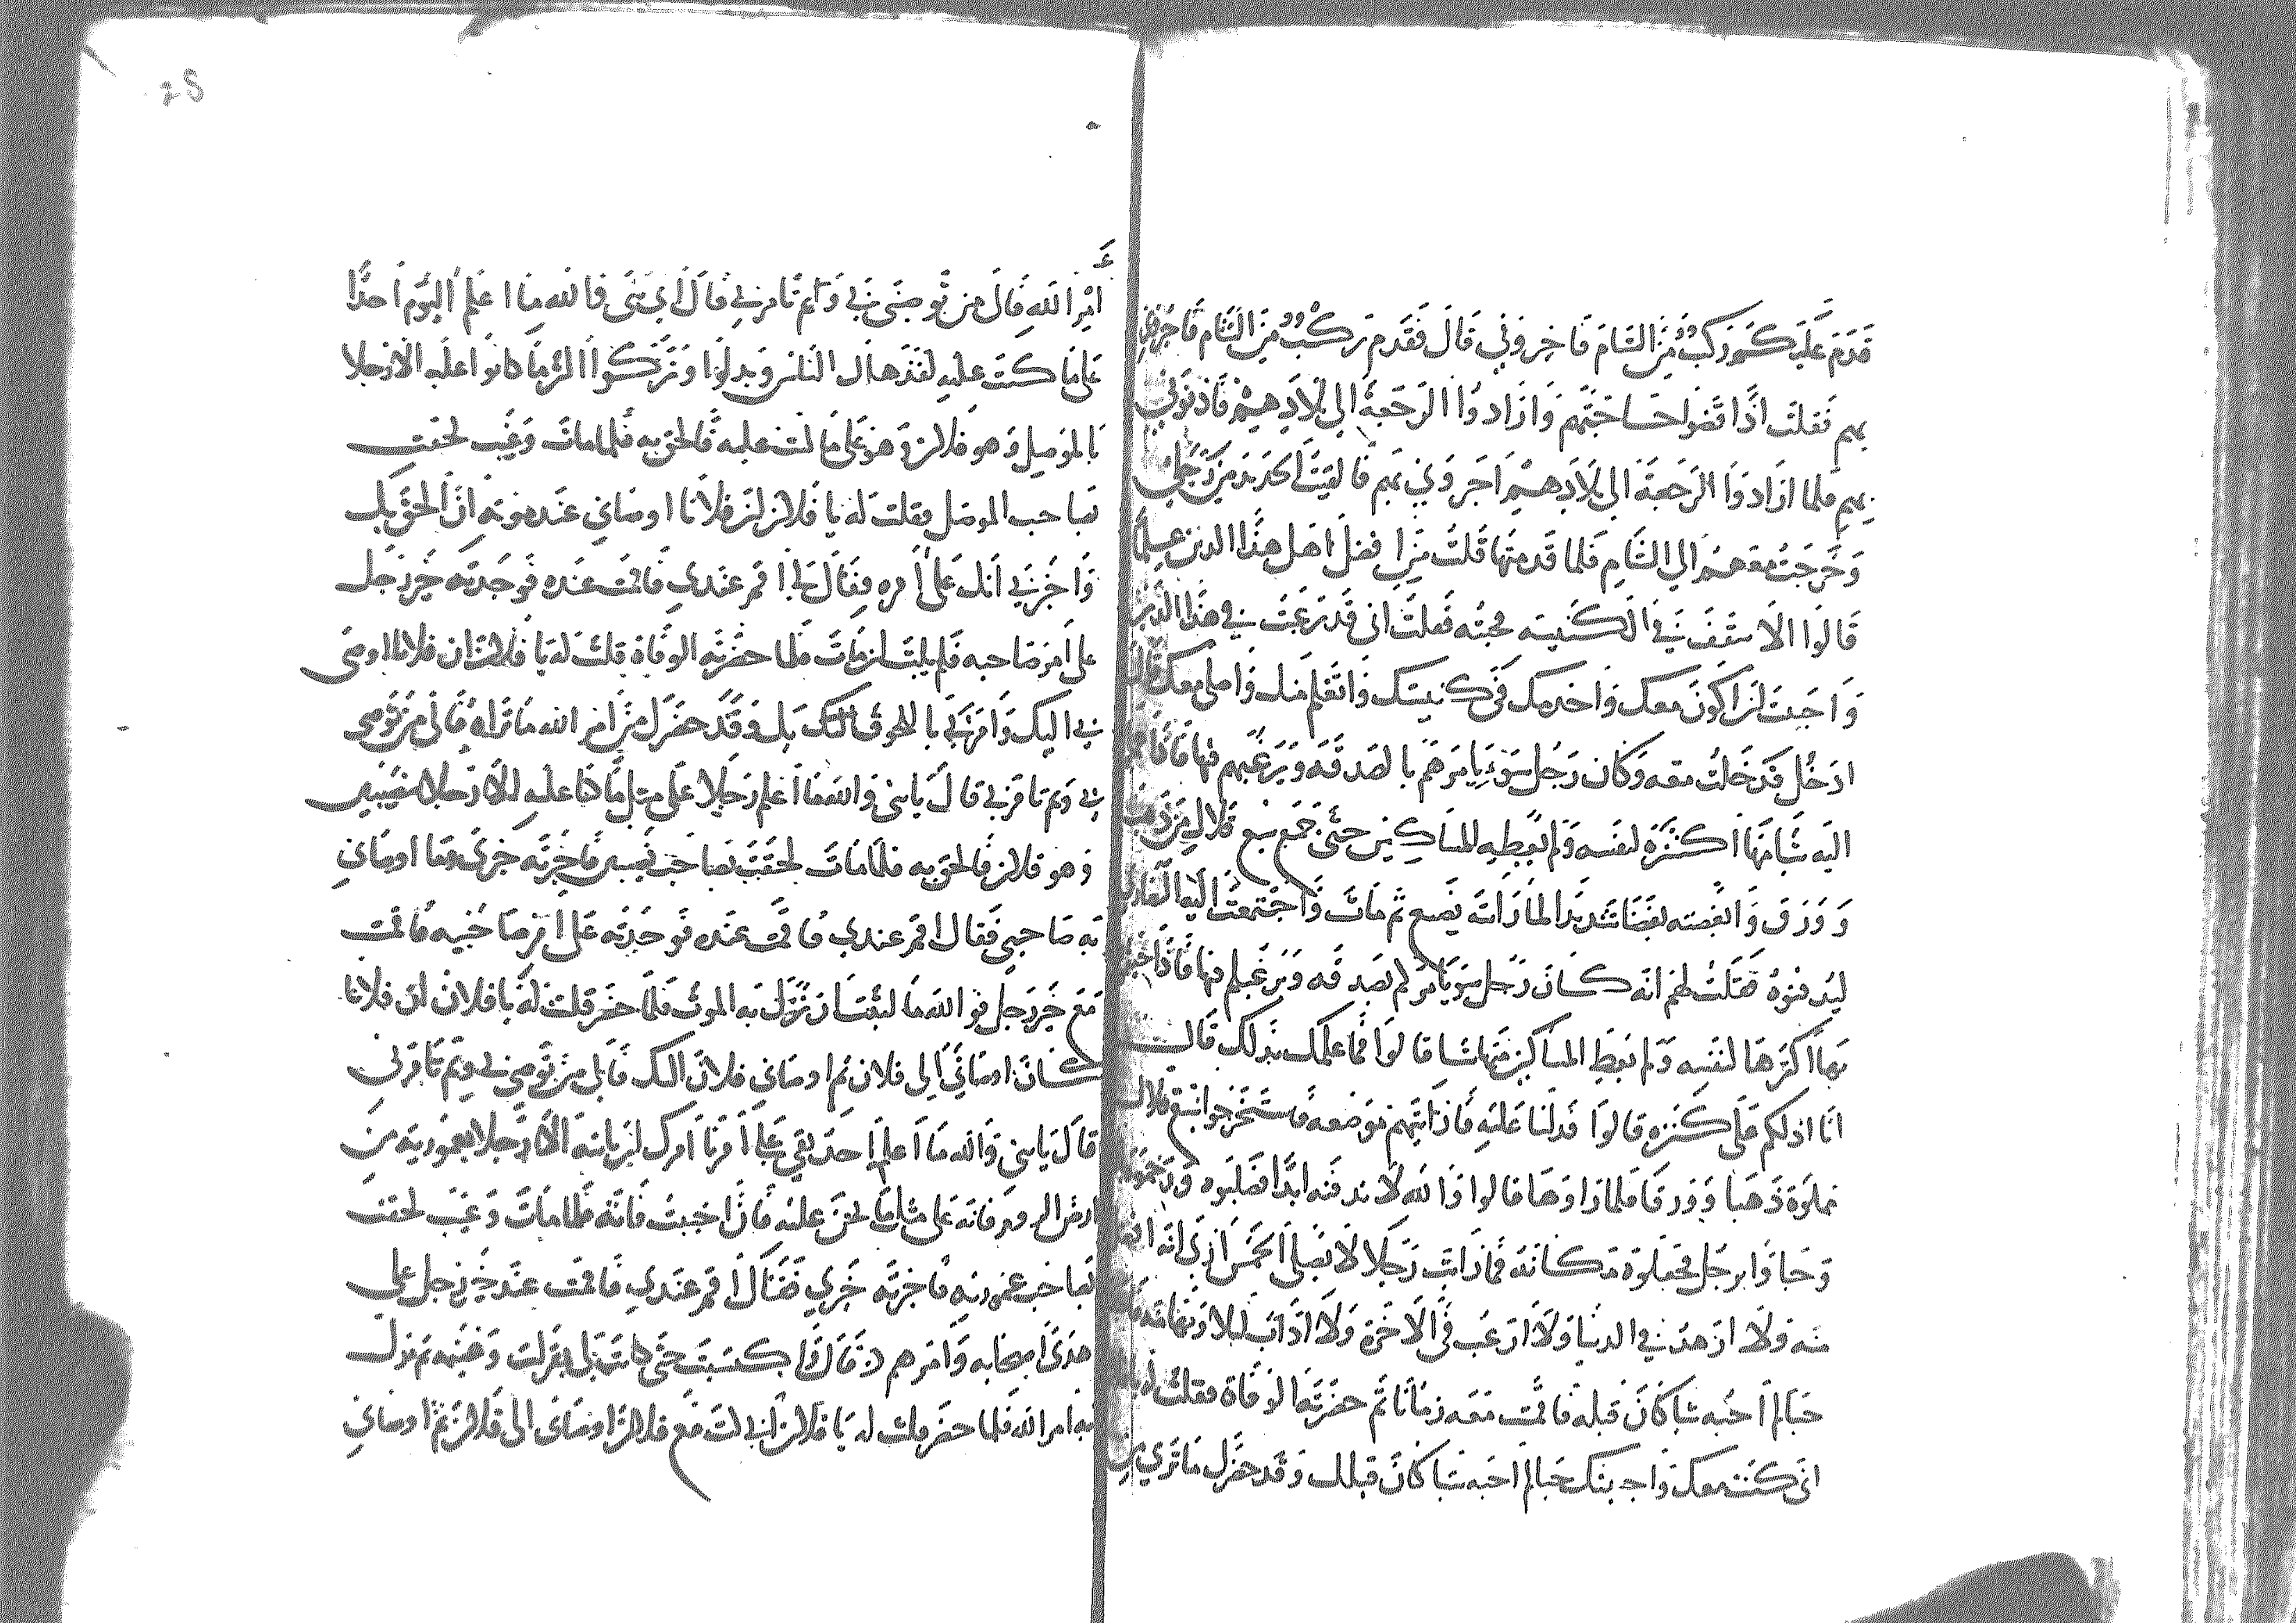 قدم عليكم ركب من الشام فاخبروني قال فقدم ركب من الشام فاخبروني
بهم فقلت اذا قضوا حاجتهم وارادوا الرجعة الى بلادهم فاذنوني
بهم فلما ارادوا الرجعة الى بلادهم اخبروني بهم فالقيت الحديد من رجلي
وخرجت معهم الى الشام فلما قدمتها قلت من افضل اهل هذا الدين علما
قالوا الاسقف في الكنيسه فجئته فقلت اني قد رغبت في هذا الدين
واحببت ان اكون معك واخدمك في كنيستك واتعلم منك واصلي معك قال
ادخل فدخلت معه وكان رجل سوء يامرهم بالصدقه ويرغبهم فيها فاذا جمعوا
اليه شيا منها اكتنزه لنفسه ولم يعطه للمساكين حتى جمع سبع قلال من ذهب
وورق وابغضته بغضا شديدا لما رايته يصنع ثم مات واجتمعت اليه النصارى
ليدفنوه فقلت لهم انه كان رجل سوء يامركم بالصدقه ويرغبكم فيها فاذا جيتموه
بها اكتنزها لنفسه ولم يعط المساكين منها شيا قالوا فما علمك بذلك قال
انا ادلكم على كنزه قالوا فدلنا عليه فاريتهم موضعه فاستخرجوا سبع قلال
مملوة ذهبا وورقا فلما راوها قالوا والله لا ندفنه ابدا فصلبوه ورجموه
وجاوا برجل فجعلوه مكانه فما رايت رجلا لا يصلي الخمس ارى انه افضل
منه ولا ازهد في الدنيا ولا ارغب في الاخرة ولا اداب ليلا ونهارا منه
حبا لم احبه شيا كان قبله فاقمت معه زمانا ثم حضرته الوفاة فقلت له يا
اني كنت معك واحببتك حبا لم احبه شيا كان قبلك وقد حضرك ما ترى من
امر الله قال من توصي بي وبم تامرني قال اي بني والله ما اعلم اليوم احدا
على ما كنت عليه لقد هلك الناس وبدلوا وتركوا اكثر ما كانوا عليه الا رجلا
بالموصل وهو فلان وهو على ما كنت عليه فالحق به فلما مات وغيب لحقت
بصاحب الموصل فقلت له يا فلان ان فلانا اوصاني عند موته ان الحق بك
واخبرني انك على امره فقال لي اقم عندي فاقمت عنده فوجدته خير رجل
على امر صاحبه فلم يلبث ان مات فلما حضرته الوفاة قلت له يا فلان ان فلانا اوصى
بي اليك وامرني باللحوق بك وقد حضرك من امر الله ما تراه فالى من توصي
بي وبم تامرني قال يا بني والله ما اعلم رجلا على مثل ما كنا عليه الا رجلا بنصيبين
وهو فلان فالحق به فلما مات لحقت بصاحب نصيبين فاخبرته خبري وما اوصاني
به صاحبي فقال اقم عندي فاقمت عنده فوجدته على امر صاحبيه فاقمت
مع خير رجل فوالله ما لبث ان نزل به الموت فلما حضر قلت له يا فلان ان فلانا
كان اوصاني الى فلان ثم اوصاني فلان اليك فالى من توصي بي وبم تامرني
قال يا بني والله ما اعلم احد بقي على امرنا امرك ان تاتيه الا رجلا بعمورية من
ارض الروم فانه على مثل ما نحن عليه فاذا احببت فاته فلما مات وغيب لحقت
بصاحب عمورية فاخبرته خبري فقال اقم عندي فاقمت عند خير رجل على
هدى اصحابه وامرهم قال واكتسبت حتى كانت لي بقرات وغنيمه ثم نزل
به امر الله فلما حضر قلت له يا فلان اني كنت مع فلان اوصاني الى فلان ثم اوصاني